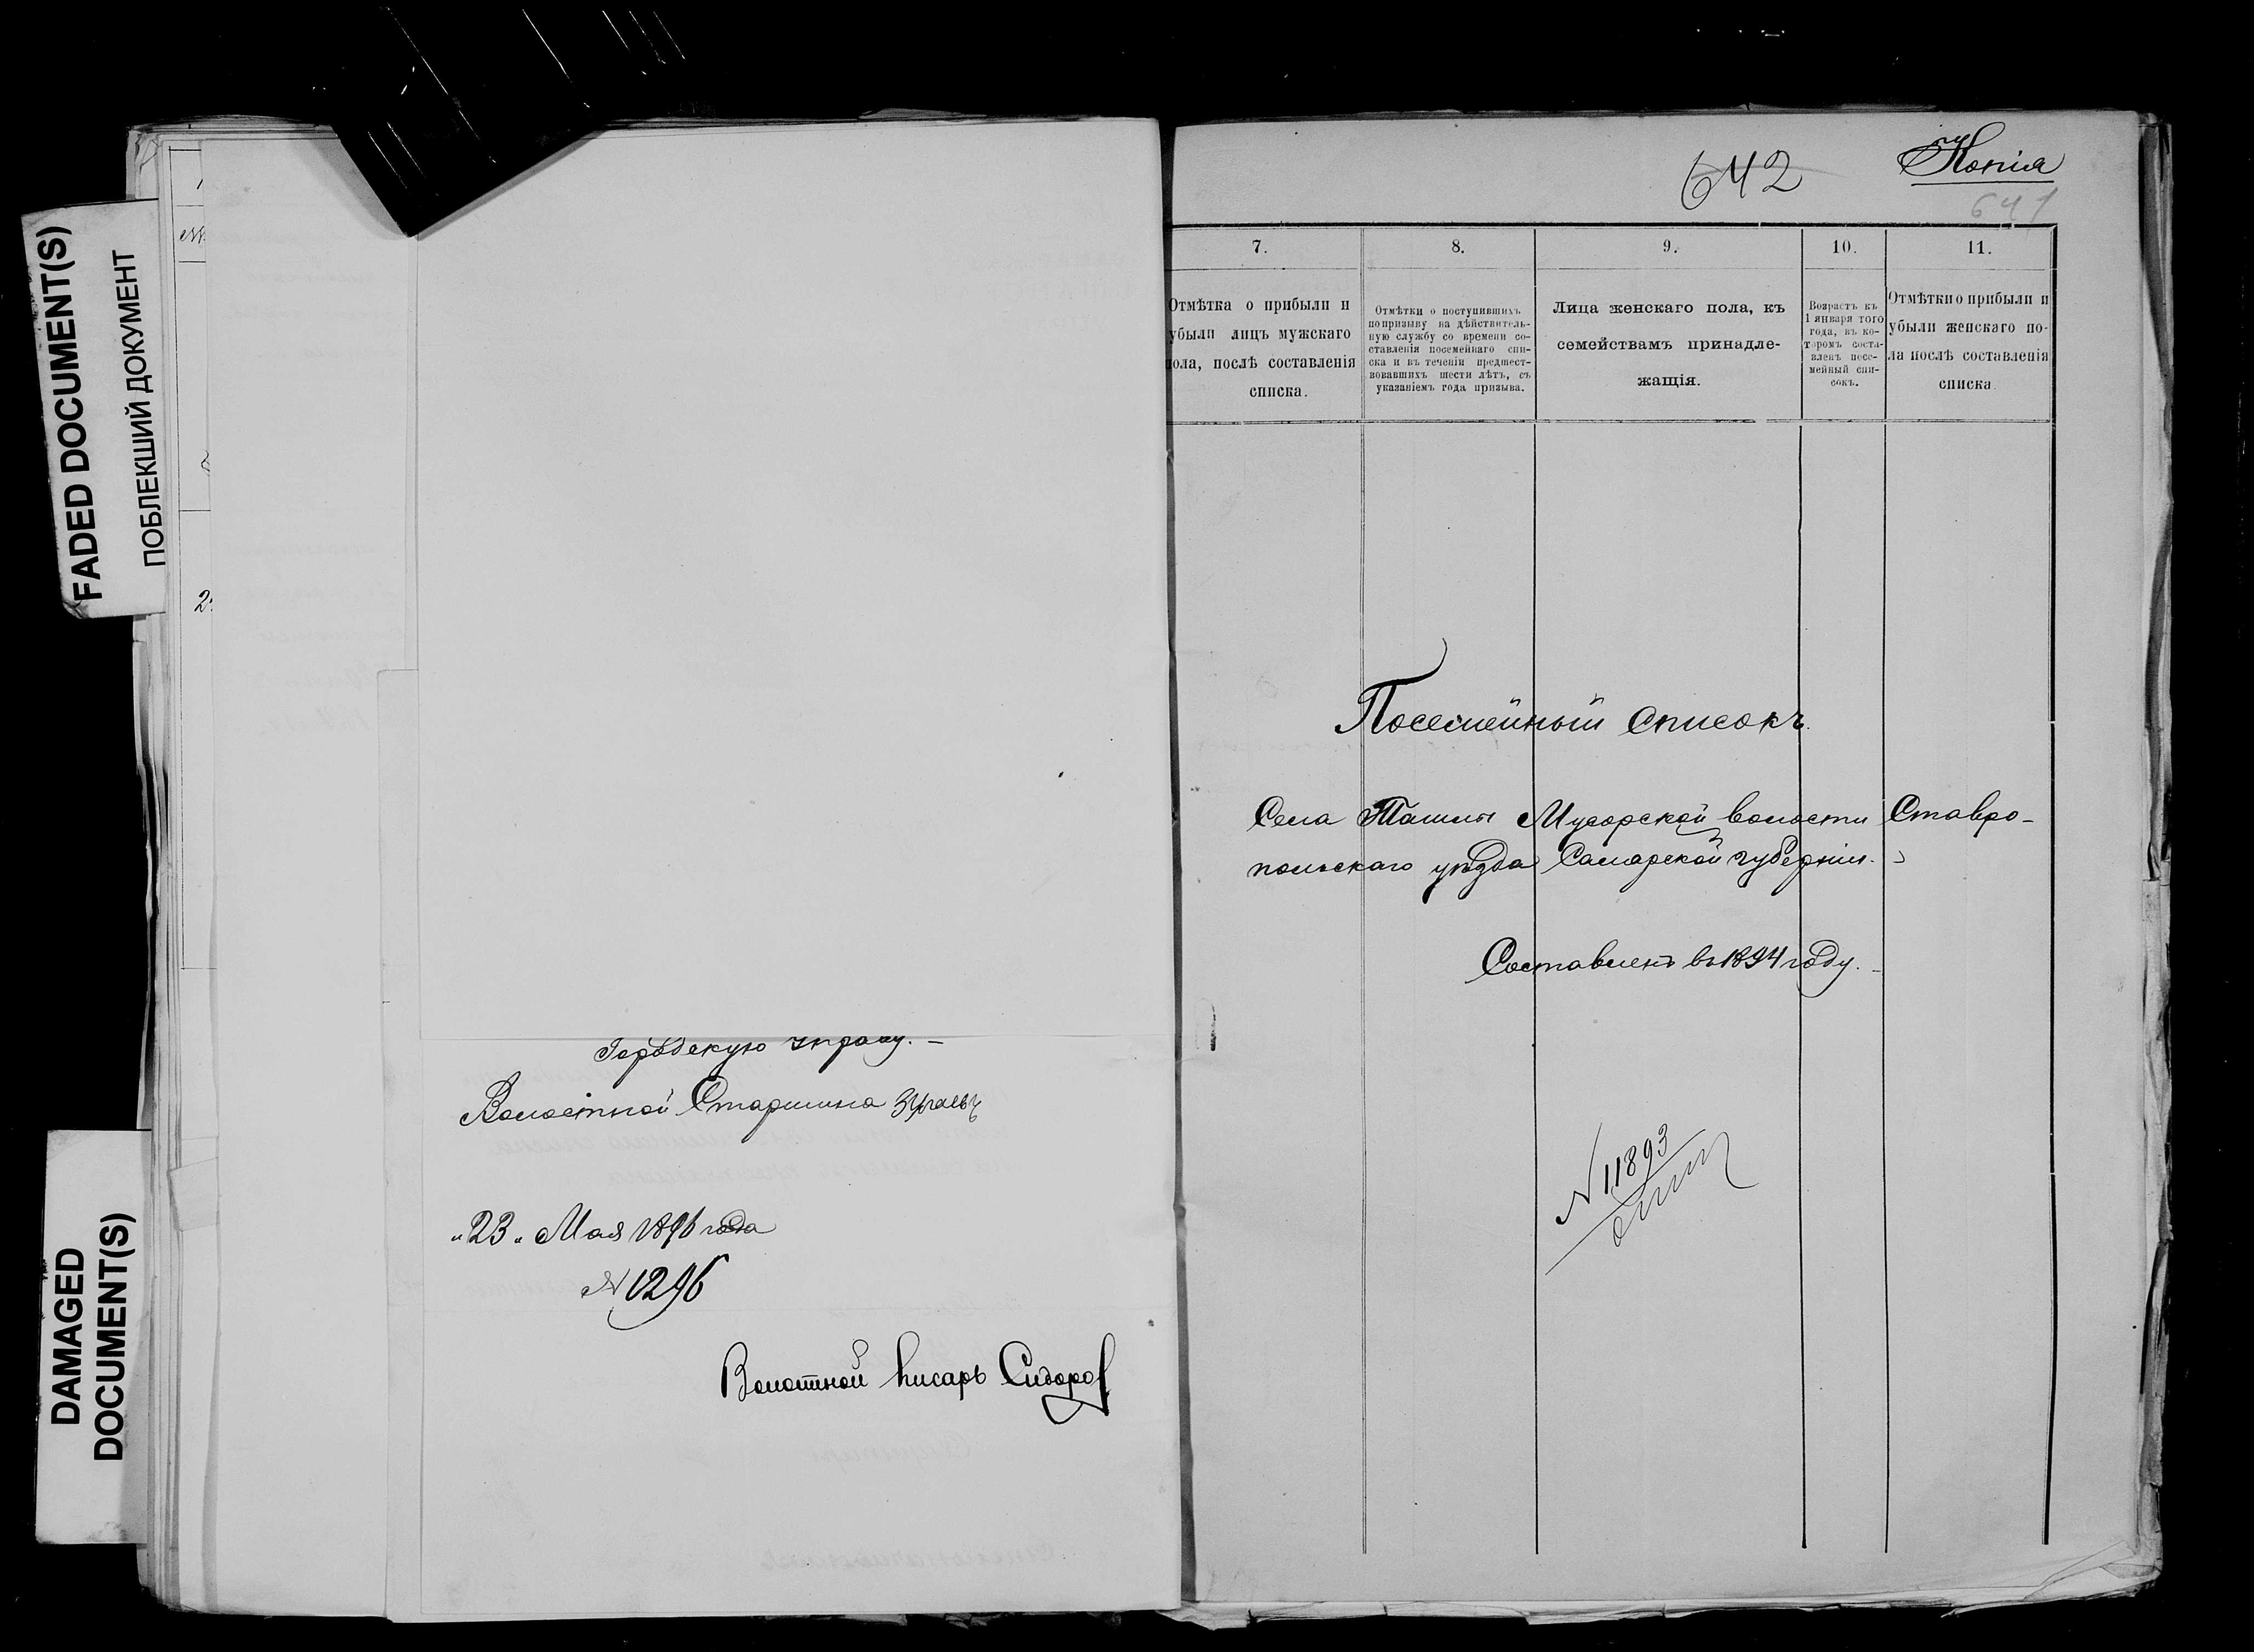 FADED DOCUMENT(S)
ПОБЛЕКШИЙ ДОКУМЕНТ
DAMAGED
DOCUMENT(S)
Городскую Управу. –
Волостной Старшина
„23„ Мая 1896 года
№ 1296
Волостной писарь Сидоров
642
Копія
641
7.
8.
9.
10.
11.
Отмѣтка о прибыли и
убыли лицъ мужскаго
пола, послѣ составленія
списка.
Отмѣтки о поступившихъ
по призыву на дѣйствитель-
ную службу со времени со-
ставленія посемейнаго спи-
ска и въ теченіи предшест-
вовавшихъ шести лѣтъ, съ
указаніемъ года призыва.
Лица женскаго пола, къ
семействамъ принадле-
жащія.
Возрастъ къ
1 января того
года, въ ко-
торомъ соста-
вленъ посе-
мейный спи-
сокъ.
Отмѣтки о прибыли и
убыли женскаго по-
ла послѣ составленія
списка.
Посемейный списокъ.
Села Ташлы Мусорской волости Ставро-
польскаго уѣзда Самарской губерніи.
Составленъ въ 1894 году. –
№ 11893